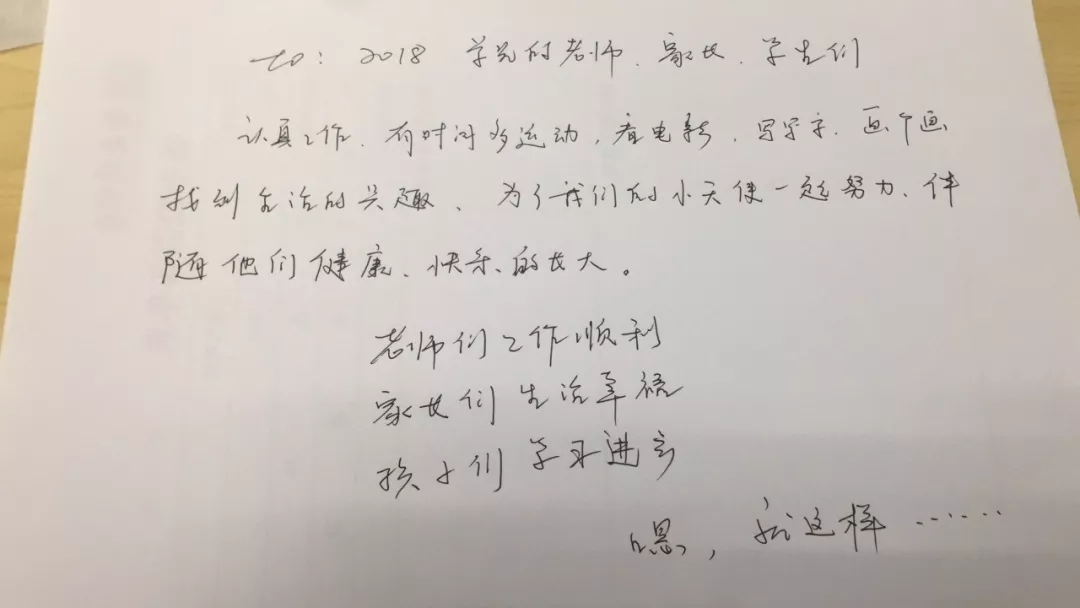 to: 2018 学児的老师、家长、学生们
认真工作、有时间多运动,看电影、写写字、画个画
找到生活的兴趣、为了我们的小天使一起努力、伴
随他们健康、快乐的长大。
老师们工作顺利
家长们生活幸福
孩子们学习进步
嗯,就这样……